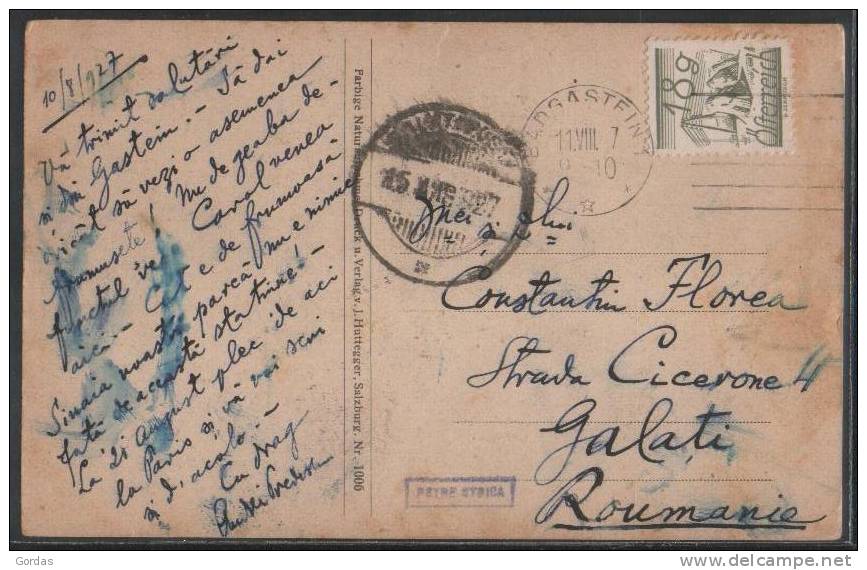 10/8/927
Vă trimit salutări
și din Gastein. — Să dai
oricât să vezi o asemenea
frumusețe! Nu de geaba de-
functul rege Carol venea
aici. — Cât e de frumoasă
Sinaia noastră parcă nu e nimic
față de această stațiune! —
La 21 August plec de aci
la Paris și vă voi scri
și d'acolo. —
Cu drag
Farbige Druck u. Verlag v. J. Huttegger, Salzburg. Nr. 1006
BADGASTEIN 1
11.VIII. 7
10
15 AUG 927
18g
Dnei și Dlui
Constantin Florea
Strada Cicerone 4
Galați
Roumanie
PETRE STRICA
Gordas
delcampe.net